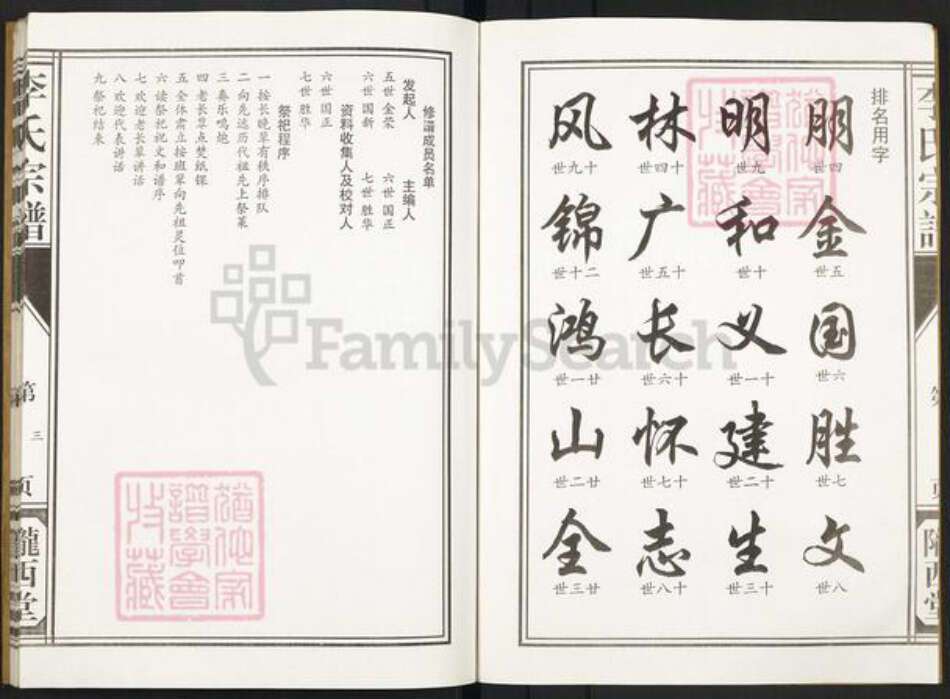 排名用字
朋 四世
金 五世
国 六世
胜 七世
文 八世
明 九世
和 十世
义 十一世
建 十二世
生 十三世
林 十四世
广 十五世
长 十六世
怀 十七世
志 十八世
风 十九世
锦 二十世
鸿 廿一世
山 廿二世
全 廿三世
修谱成员名单
发起人 主编人
五世金荣 六世国正
六世国新 七世胜华
资料收集人及校对人
六世国正
七世胜华
祭祀程序
一 按长晚辈有秩序排队
二 向先远历代祖先上祭菜
三 奏乐鸣炮
四 老长辈点焚纸锞
五 全体肃立按班辈向先祖灵位叩首
六 读祭祀祝文和谱序
七 欢迎老长辈讲话
八 欢迎代表讲话
九 祭祀结束
李氏宗譜
第三页
隴西堂
FamilySearch